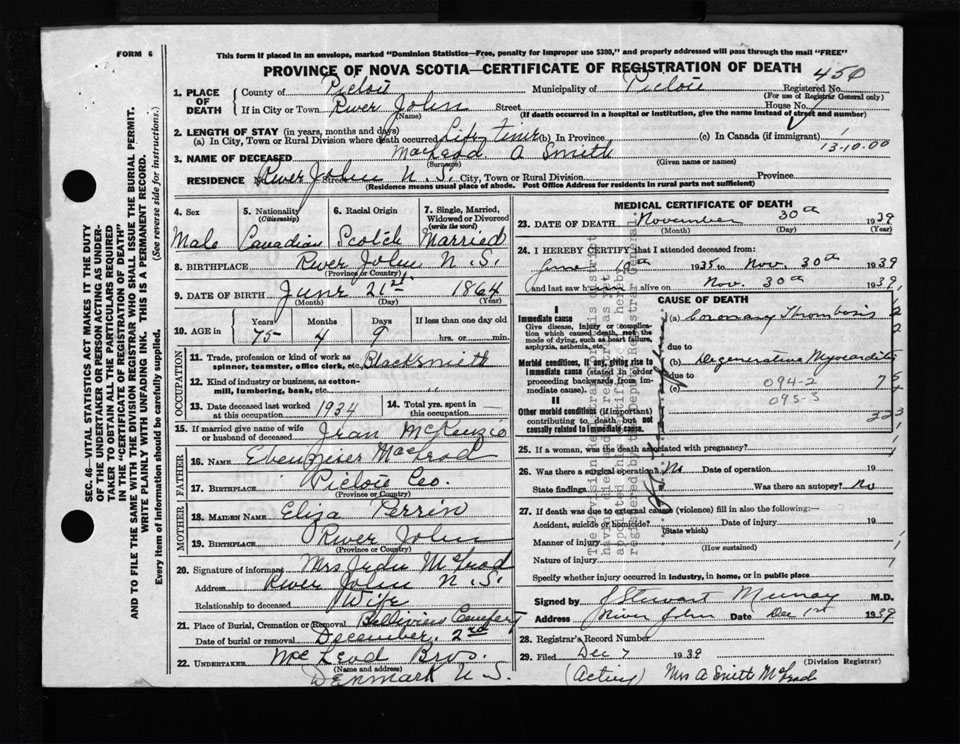 FORM 6
This form if placed in an envelope, marked "Dominion Statistics—Free, penalty for improper use $300," and properly addressed will pass through the mail "FREE"
PROVINCE OF NOVA SCOTIA—CERTIFICATE OF REGISTRATION OF DEATH
450
1. PLACE OF DEATH
County of Pictou Municipality of Pictou Registered No.
(For use of Registrar General only)
If in City or Town River John Street House No.
(Name) (If death occurred in a hospital or institution, give the name instead of street and number)
2. LENGTH OF STAY (in years, months and days)
(a) In City, Town or Rural Division where death occurred Life Time (b) In Province (c) In Canada (if immigrant)
13-10-00
3. NAME OF DECEASED MacLeod A Smith
(Surname) (Given name or names)
RESIDENCE No. River John N.S. Street City, Town or Rural Division Province
(Residence means usual place of abode. Post Office Address for residents in rural parts not sufficient)
4. Sex Male
5. Nationality (Citizenship) Canadian
6. Racial Origin Scotch
7. Single, Married, Widowed or Divorced (write the word) Married
8. BIRTHPLACE River John N.S.
(Province or Country)
9. DATE OF BIRTH June 21st 1864
(Month) (Day) (Year)
10. AGE in Years Months Days If less than one day old
75 9 hrs. or min.
OCCUPATION
11. Trade, profession or kind of work as spinner, teamster, office clerk, etc. Blacksmith
12. Kind of industry or business, as cotton-mill, lumbering, bank, etc. "
13. Date deceased last worked at this occupation 1934
14. Total yrs. spent in this occupation
15. If married give name of wife or husband of deceased Jean McKenzie
FATHER
16. NAME Ebenezer MacLeod
17. BIRTHPLACE Pictou Co.
(Province or Country)
MOTHER
18. MAIDEN NAME Eliza Perrin
19. BIRTHPLACE River John
(Province or Country)
20. Signature of informant Mrs McLeod
Address River John N.S.
Relationship to deceased Wife
21. Place of Burial, Cremation or Removal Cemetery
Date of burial or removal December 2nd
22. UNDERTAKER McLeod Bros.
(Name and address)
Denmark N.S.
MEDICAL CERTIFICATE OF DEATH
23. DATE OF DEATH November 30th 1939
(Month) (Day) (Year)
24. I HEREBY CERTIFY that I attended deceased from:
June 10th 1935 to Nov. 30th 1939
and last saw him alive on Nov. 30th 1939
CAUSE OF DEATH
I
Immediate cause
Give disease, injury or complication which caused death, not the mode of dying, such as heart failure, asphyxia, asthenia, etc.
(a) Coronary Thrombosis
due to
Morbid conditions, if any, giving rise to immediate cause (stated in order proceeding backwards from immediate cause).
(b) Degenerative Myocarditis
due to
(c)
094-2
095-3
II
Other morbid conditions (if important) contributing to death but not causally related to immediate cause.
25. If a woman, was the death associated with pregnancy?
26. Was there a surgical operation? No Date of operation 19
State findings Was there an autopsy? No
27. If death was due to external causes (violence) fill in also the following:—
Accident, suicide or homicide? Date of injury 19
(State which)
Manner of injury
(How sustained)
Nature of injury
Specify whether injury occurred in industry, in home, or in public place
Signed by J Stewart Murray M.D.
Address River John Date Dec 1st 1939
28. Registrar's Record Number
29. Filed Dec 7 1939
(Division Registrar)
(Acting) Mrs A Smith McLeod
SEC. 46—VITAL STATISTICS ACT MAKES IT THE DUTY
OF THE UNDERTAKER OR PERSON ACTING AS UNDER-
TAKER TO OBTAIN ALL THE PARTICULARS REQUIRED
IN THE "CERTIFICATE OF REGISTRATION OF DEATH"
AND TO FILE THE SAME WITH THE DIVISION REGISTRAR WHO SHALL ISSUE THE BURIAL PERMIT.
WRITE PLAINLY WITH UNFADING INK. THIS IS A PERMANENT RECORD.
Every item of information should be carefully supplied. (See reverse side for instructions.)